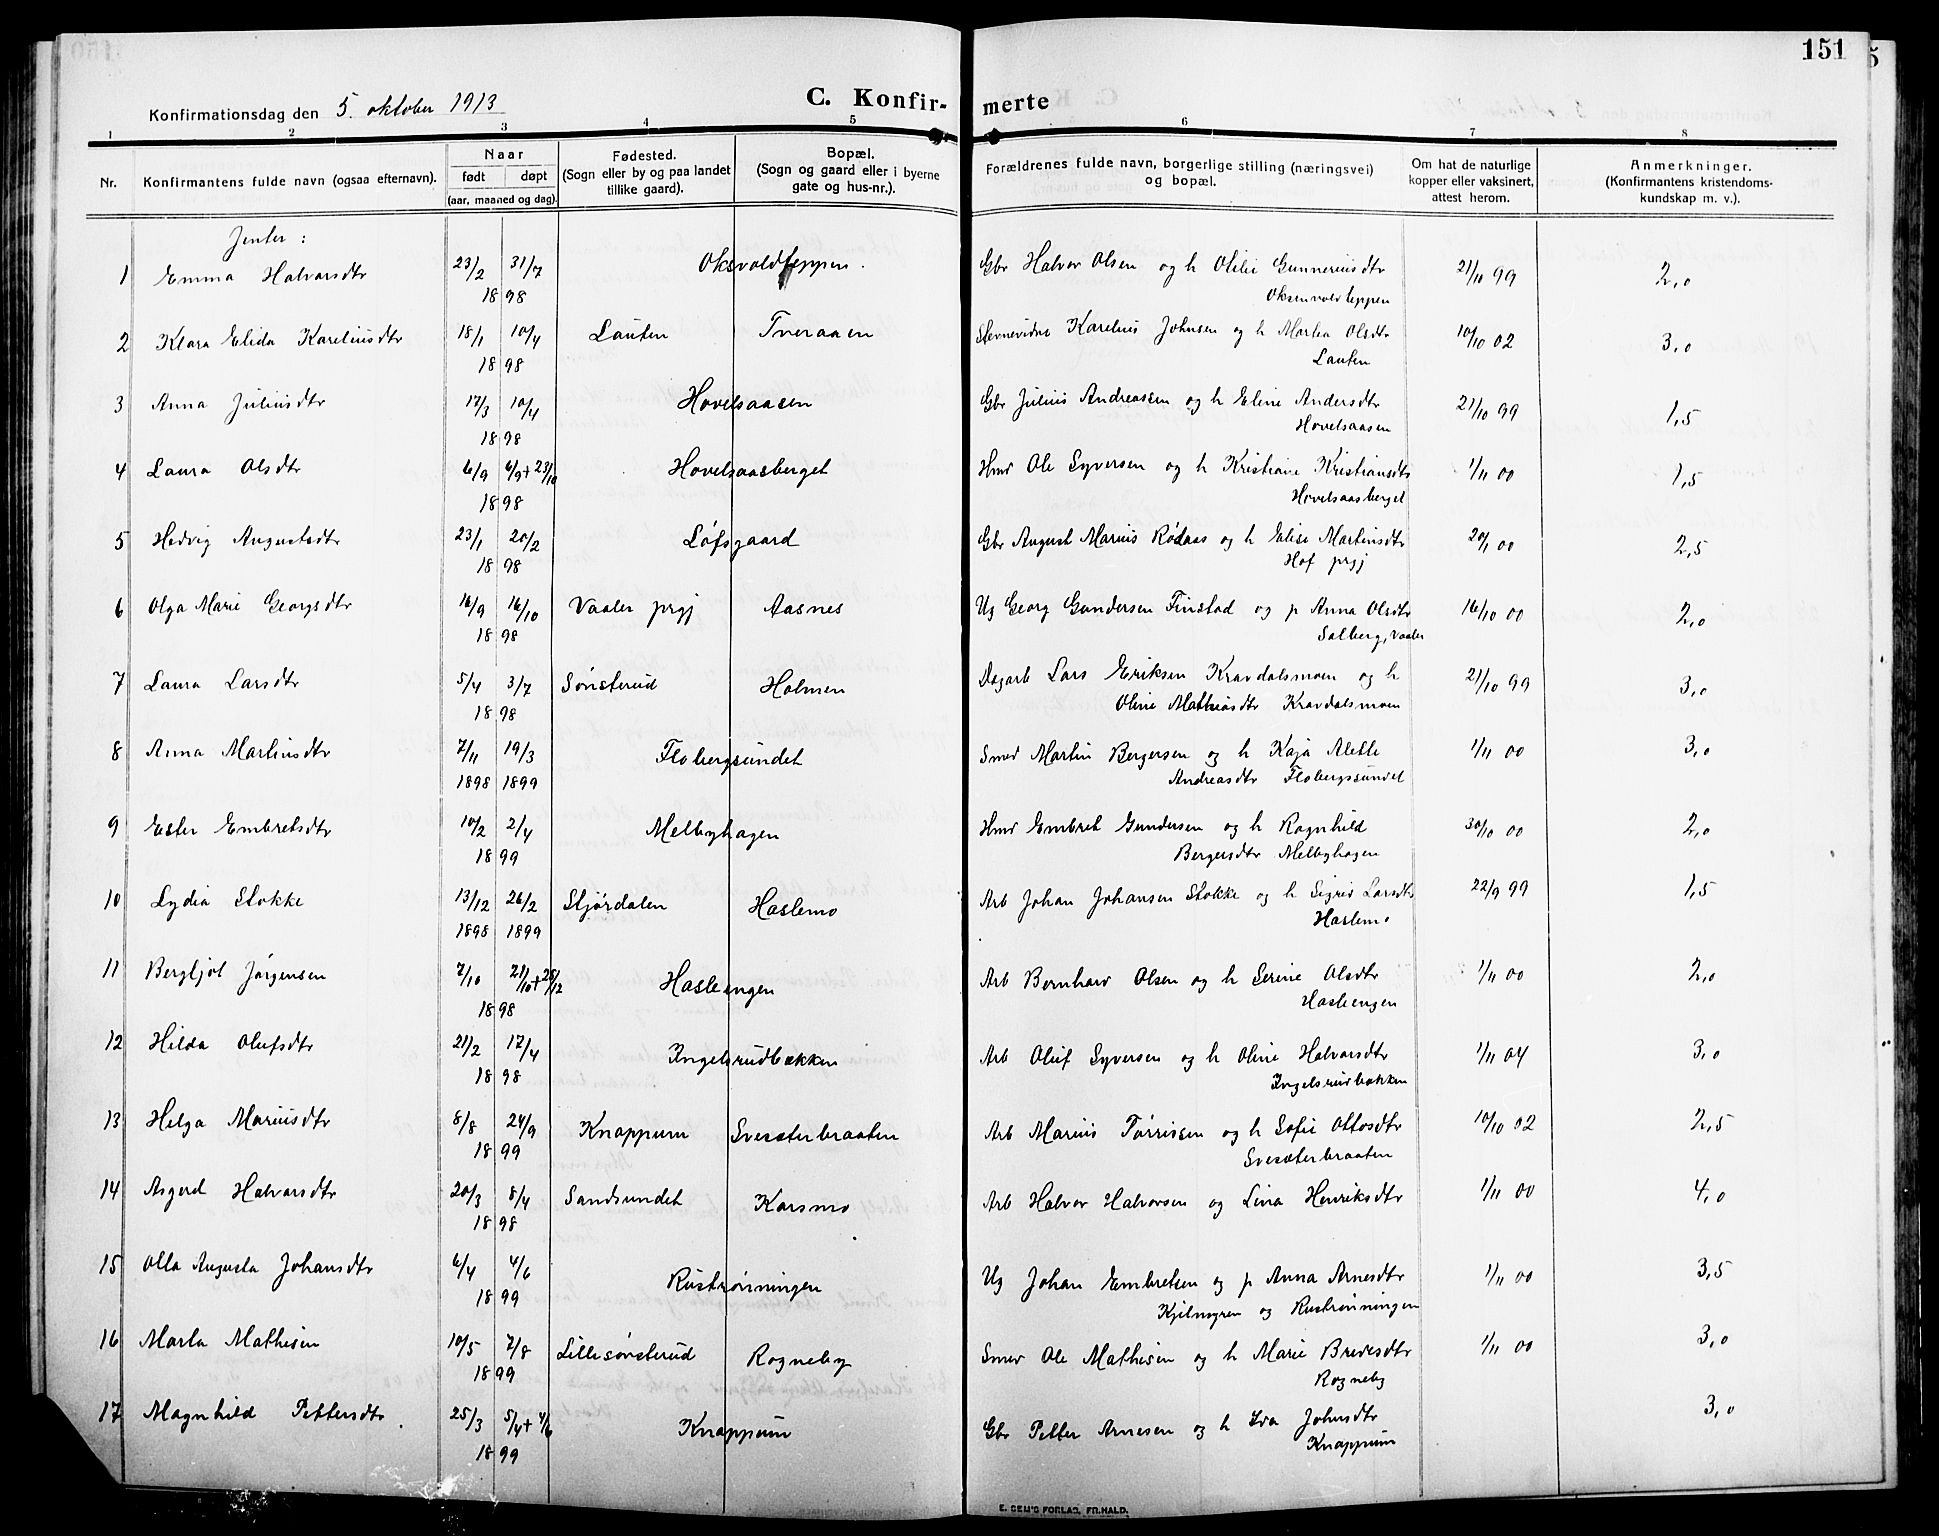 151
Konfirmationsdag den 5. oktober 1913
C. Konfir- merte
1 2 3 4 5 6 7 8
Nr. Konfirmantens fulde navn (ogsaa efternavn). Naar født døpt (aar, maaned og dag). Fødested. (Sogn eller by og paa landet tillike gaard). Bopæl. (Sogn og gaard eller i byerne gate og hus-nr.). Forældrenes fulde navn, borgerlige stilling (næringsvei) og bopæl. Om hat de naturlige kopper eller vaksinert, attest herom. Anmerkninger. (Konfirmantens kristendoms- kundskap m. v.).
Jenter :
1 Emma Halvorsdtr 23/2 31/7 Oksvoldteppen. Gbr Halvor Olsen og h Otilie Gunneriusdtr 21/10 99 2,0
1898 Oksenvoldteppen
2 Klara Elida Kareliusdtr 18/1 10/4 Lauten Tveraaen Stevnevidne Karelius Johnsen og h Martea Olsdtr 10/10 02 3,0
1898 Lauten
3 Anna Juliusdtr 17/3 10/4 Hovelsaasen Gbr Julius Andreassen og h Eline Andersdtr 21/10 99 1,5
1898 Hovelsaasen
4 Laura Olsdtr 6/9 6/9+23/10 Hovelsaasberget Hmd Ole Syversen og h Kristiane Kristiansdtr 1/11 00 1,5
1898 Hovelsaasberget
5 Hedvig Augustsdtr 23/1 20/2 Løfsgaard Gbr August Marius Rødaas og h Elise Martinsdtr 20/1 00 2,5
1898 Hof prgj
6 Olga Marie Georgsdtr 16/9 16/10 Vaaler prgj Aasnes Ug Georg Gundersen Finstad og p Anna Olsdtr 16/10 00 2,0
1898 Solberg, Vaaler
7 Laura Larsdtr 5/4 3/7 Sønsterud Holmen Dagarb Lars Eriksen Kravdalsmoen og h 21/10 99 3,0
1898 Oline Mathiasdtr Kravdalsmoen
8 Anna Martinsdtr 7/11 19/3 Flobergsundet Smed Martin Bergersen og h Kaja Alette 1/11 00 3,0
1898 1899 Andreasdtr Flobergsundet
9 Ester Embretsdtr 10/2 2/4 Melbyhagen Hmd Embret Gundersen og h Ragnhild 30/10 00 2,0
1899 Bergersdtr Melbyhagen
10 Lydia Stokke 13/12 26/2 Stjørdalen Haslemo Arb Johan Johansen Stokke og h Sigrid Larsdtr 22/9 99 1,5
1898 1899 Haslemo
11 Bergljot Jørgensen 7/10 21/10+25/12 Hasleengen Arb Bernhard Olsen og h Serine Olsdtr 1/11 00 2,0
1898 Hasleengen
12 Hilda Olufsdtr 21/2 17/4 Ingelsrudbækken Arb Oluf Syversen og h Oline Halvorsdtr 1/11 04 3,0
1898 Ingelsrudbækken
13 Helga Mariusdtr 8/8 24/9 Knappum Svesæterbraaten Arb Marius Tørrissen og h Sofie Ottosdtr 10/10 02 2,5
1899 Svesæterbraaten
14 Asgerd Halvorsdtr 20/3 8/4 Sandsundet Karsmo Arb Halvor Halvorsen og Lina Henriksdtr 1/11 00 4,0
1898
15 Olla Augusta Johansdtr 6/4 4/6 Rustrønningen Ug Johan Embretsen og p Anna Arnesdtr 1/11 00 3,5
1899 Kjilmyren og Rustrønningen
16 Marta Mathisen 10/5 7/8 Lillesønsterud Rogneby Smed Ole Mathisen og h Marie Bredesdtr 1/11 00 3,0
1899 Rogneby
17 Magnhild Pettersdtr. 25/3 5/4+4/6 Knappum Gbr Petter Arnesen og h Eva Johnsdtr 3,0
1899 Knappum
E. SEM'S FORLAG, FR.HALD.